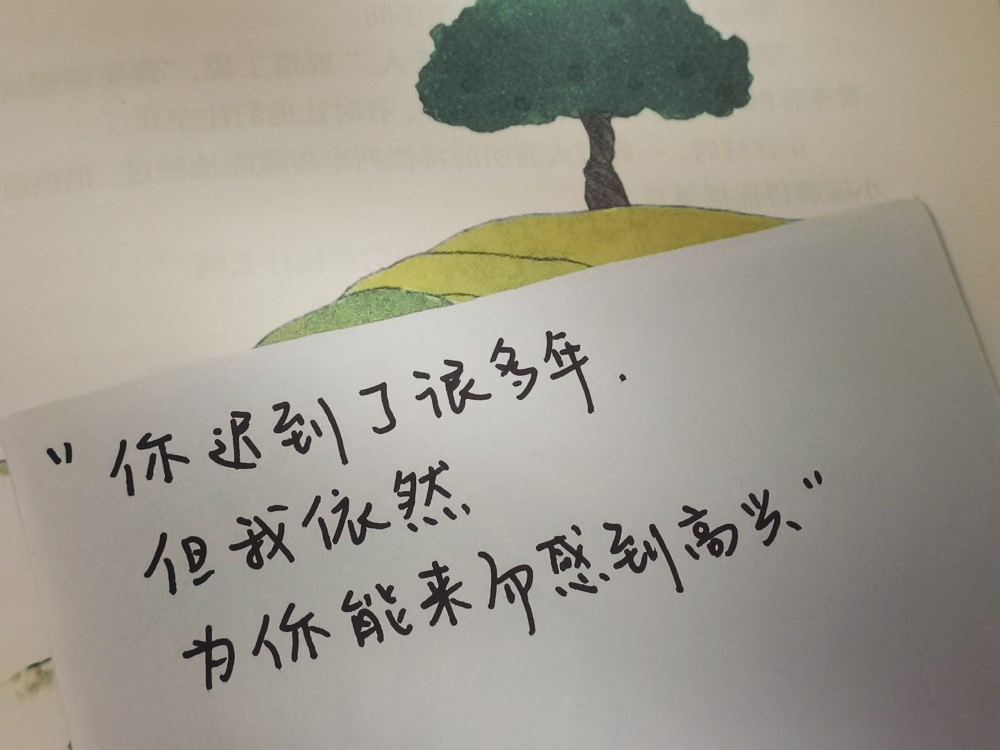 "你迟到了很多年.
但我依然
为你能来而感到高兴"